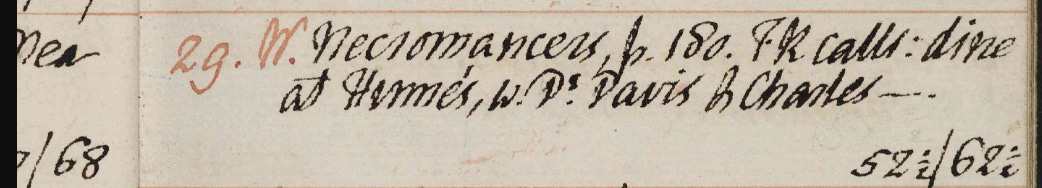 29. W. Necromancers, p. 180. F K calls: dine
at Hume's, w. Dr Davis & Charles —.
/68
52½/62½